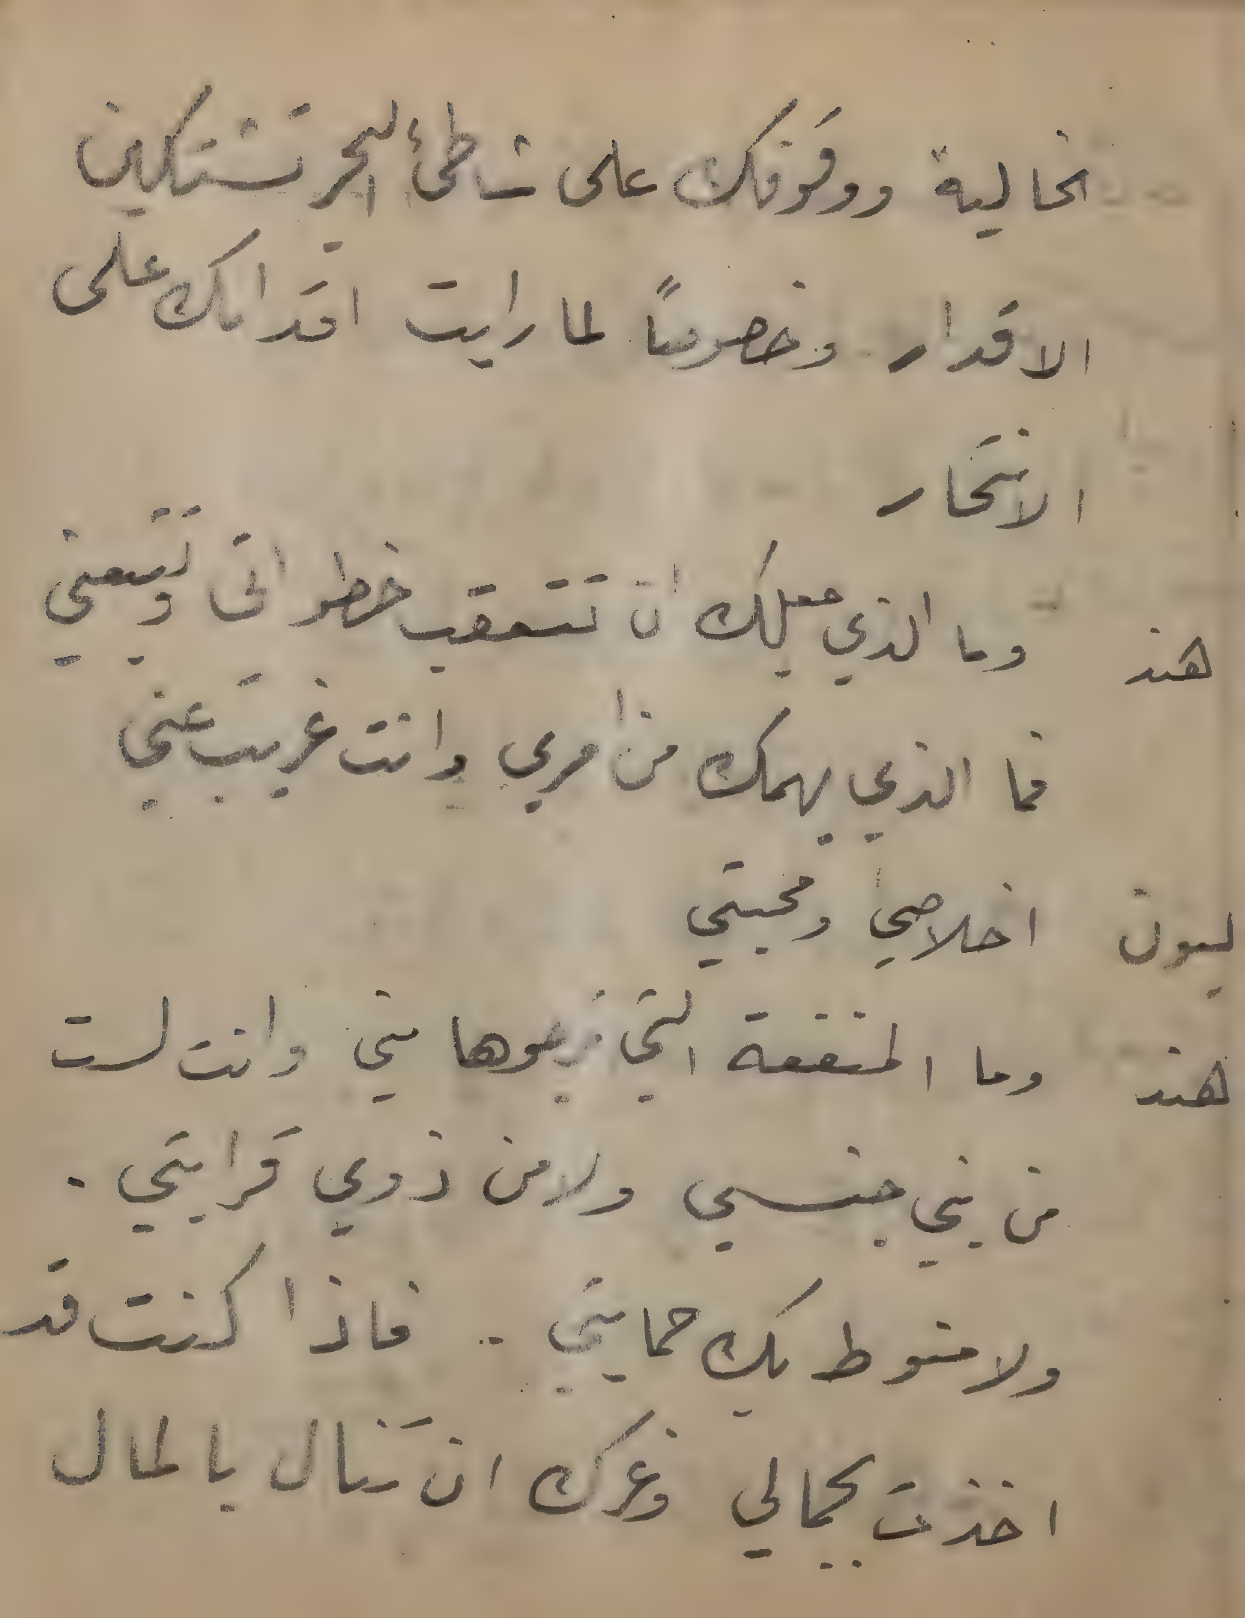 الخالية ووقوفك على شاطئ البحر تشتكين
الاقدار وخصوصاً لما رايت اقدامك على
الانتحار
هند وما الذي جعلك ان تتعقب خطواتي وتتبعني
فما الذي يهمك من امري وانت غريب عني
ليون اخلاصي ومحبتي
هند وما المنفعة التي ترجوها مني وانت لست
من بني جنسي ولا من ذوي قرابتي .
ولا منوط بك حمايتي .. فاذا كنت قد
اخذت بجمالي وغرك ان تنال بالمال